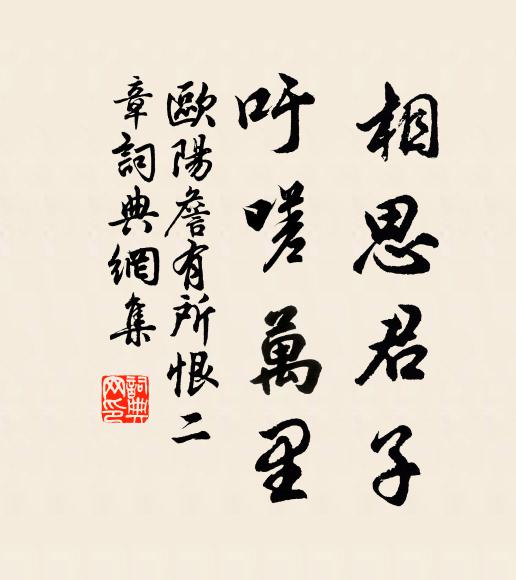 相思君子
吁嗟萬里
歐陽詹有所恨二
章詞典網集
詞典
网印